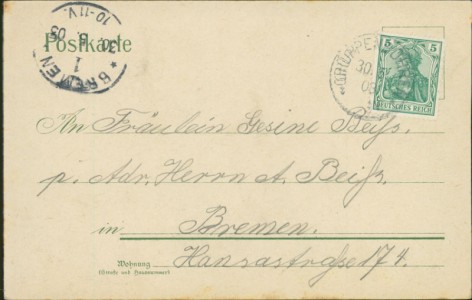 Postkarte
BREMEN
1
30. 5. 03
10-11V.
GRÜPPEN
30.
5
5
DEUTSCHES REICH
An Fräulein Gesine Beiß.
p. Adr. Herrn A. Beiß.
in Bremen.
Wohnung
(Straße und Hausnummer)
Hansastraße 174.